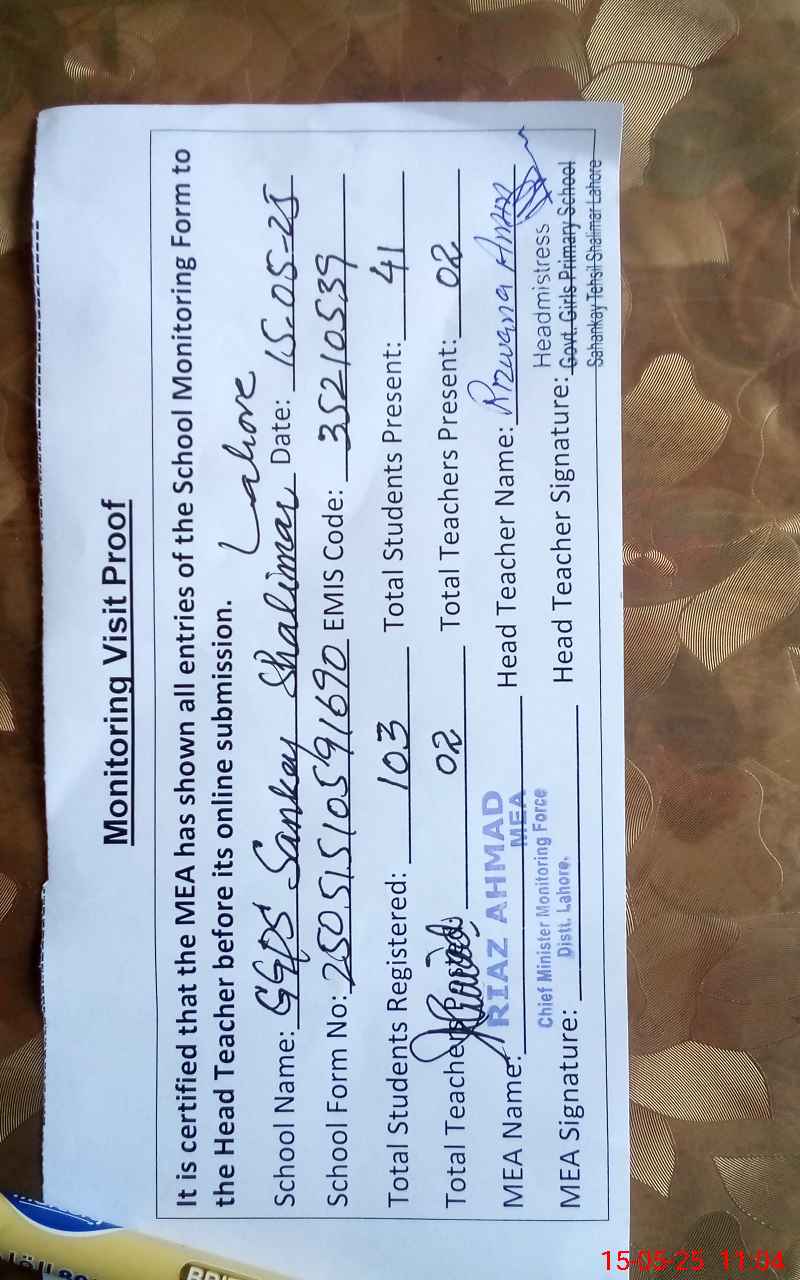 Monitoring Visit Proof
It is certified that the MEA has shown all entries of the School Monitoring Form to
the Head Teacher before its online submission.
Lahore
School Name: GGPS Sankay Shalimar Date: 15-05-25
School Form No: 25051510591690 EMIS Code: 35210539
Total Students Registered: 103 Total Students Present: 41
Total Teachers 02 Total Teachers Present: 02
MEA Name: RIAZ AHMAD Head Teacher Name: Rizwana
MEA
Chief Minister Monitoring Force
Distt. Lahore.
MEA Signature: Head Teacher Signature:
Headmistress
Govt. Girls Primary School
Sahankay Tehsil Shalimar Lahore
15-05-25 11:04